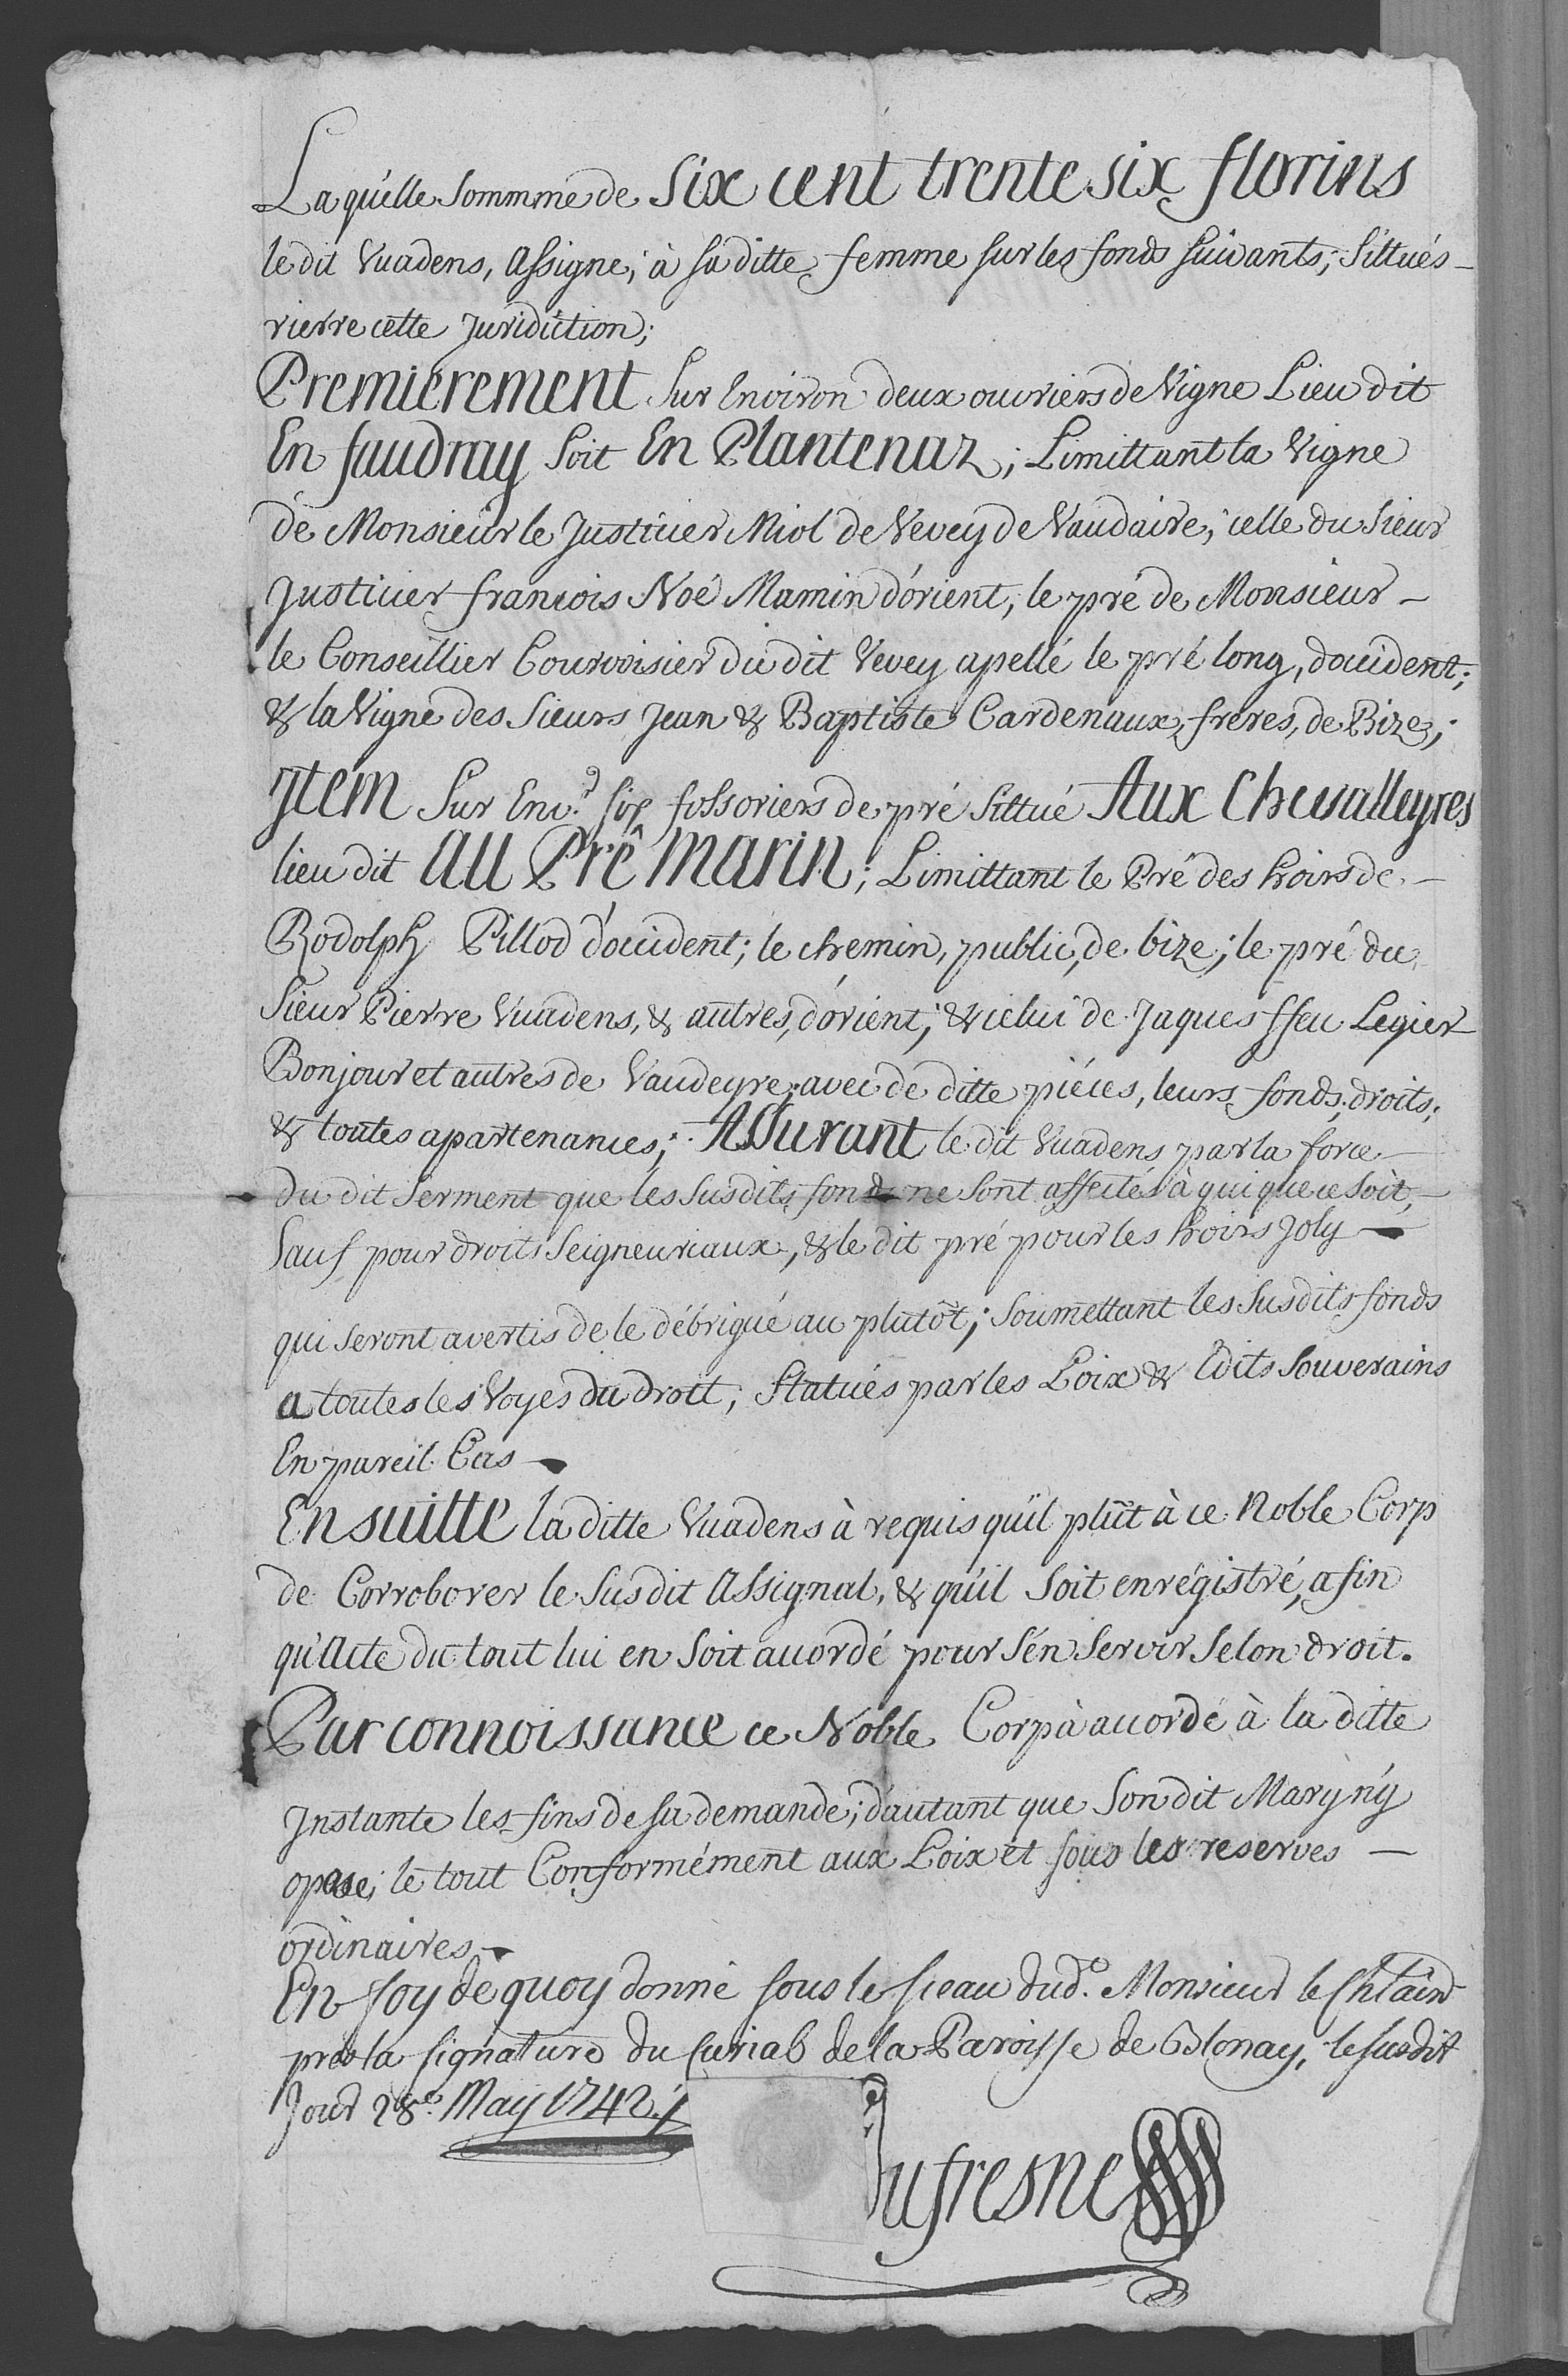 Laquélle Sommme de Six cent trente six florins
le dit Vuadens, Assigne, à sa ditte femme sur les fonds suivants; Sittués
rierre cette Juridiction;
Premiérement Sur Environ deux ouvriers de Vigne Lieu dit
En faudray Soit En Plantenaz; Limittant la Vigne
de Monsieur le Justicier Miol de Vevey de Vaudaire; celle du Sieur
Justicier francois Noé Mamin d'órient, le pré de Monsieur
le Conseillier Courvoisier du dit Vevey apellé le pré long, d'occident;
& la Vigne des Sieurs Jean & Baptiste Cardenaux, fréres, de Bize;
Jtem Sur Env.ⁿ six fossoriers de pré Sittué Aux Chevalleyres
lieu dit au Prê Marin; Limittant le Pré des hoirs de
Rodolph Pillod d'occident; le chemin, public, de bize; le pré du
Sieur Pierre Vuadens, & autres, d'órient; & celui de Jaques ffeu Legier
Bonjour et autres de Vaudeyre; avec de ditte piéces, leurs fonds, droits,
& toutes apartenances; Assurant le dit Vuadens par la force
du dit Serment que les Susdits fonds ne Sont affectés à qui que ce Soit,
Sauf pour droits Seigneuriaux, & le dit pré pour les hoirs Joly
qui Seront avertis de le débrigué au plutôt; Soumettant les Susdits fonds
a toutes les Voyes du droit, Statués par les Loix & Edits Souverains
En pareil Cas
Ensuitte la ditte Vuadens à requis qu'il plût à ce Noble Corp
de Corroborer le Susdit Assignal, & qu'il Soit enrégistré, afin
qu'Acte du tout lui en Soit accordé pour s'én Servir Selon droit.
Par connoissance ce Noble Corp à accordé à la ditte
Jnstante les fins de sa demande; d'autant que Son dit Mary n'y
opose; le tout Conformément aux Loix et sous les reserves
ordinaires
En foy de quoy donné sous le sceau dud.ᵗ Monsieur le Chlâin
pres la signature du Curial de la Paroisse de Blonay, le susdit
Jour 28.ᵉ May 1742.
Dufresne